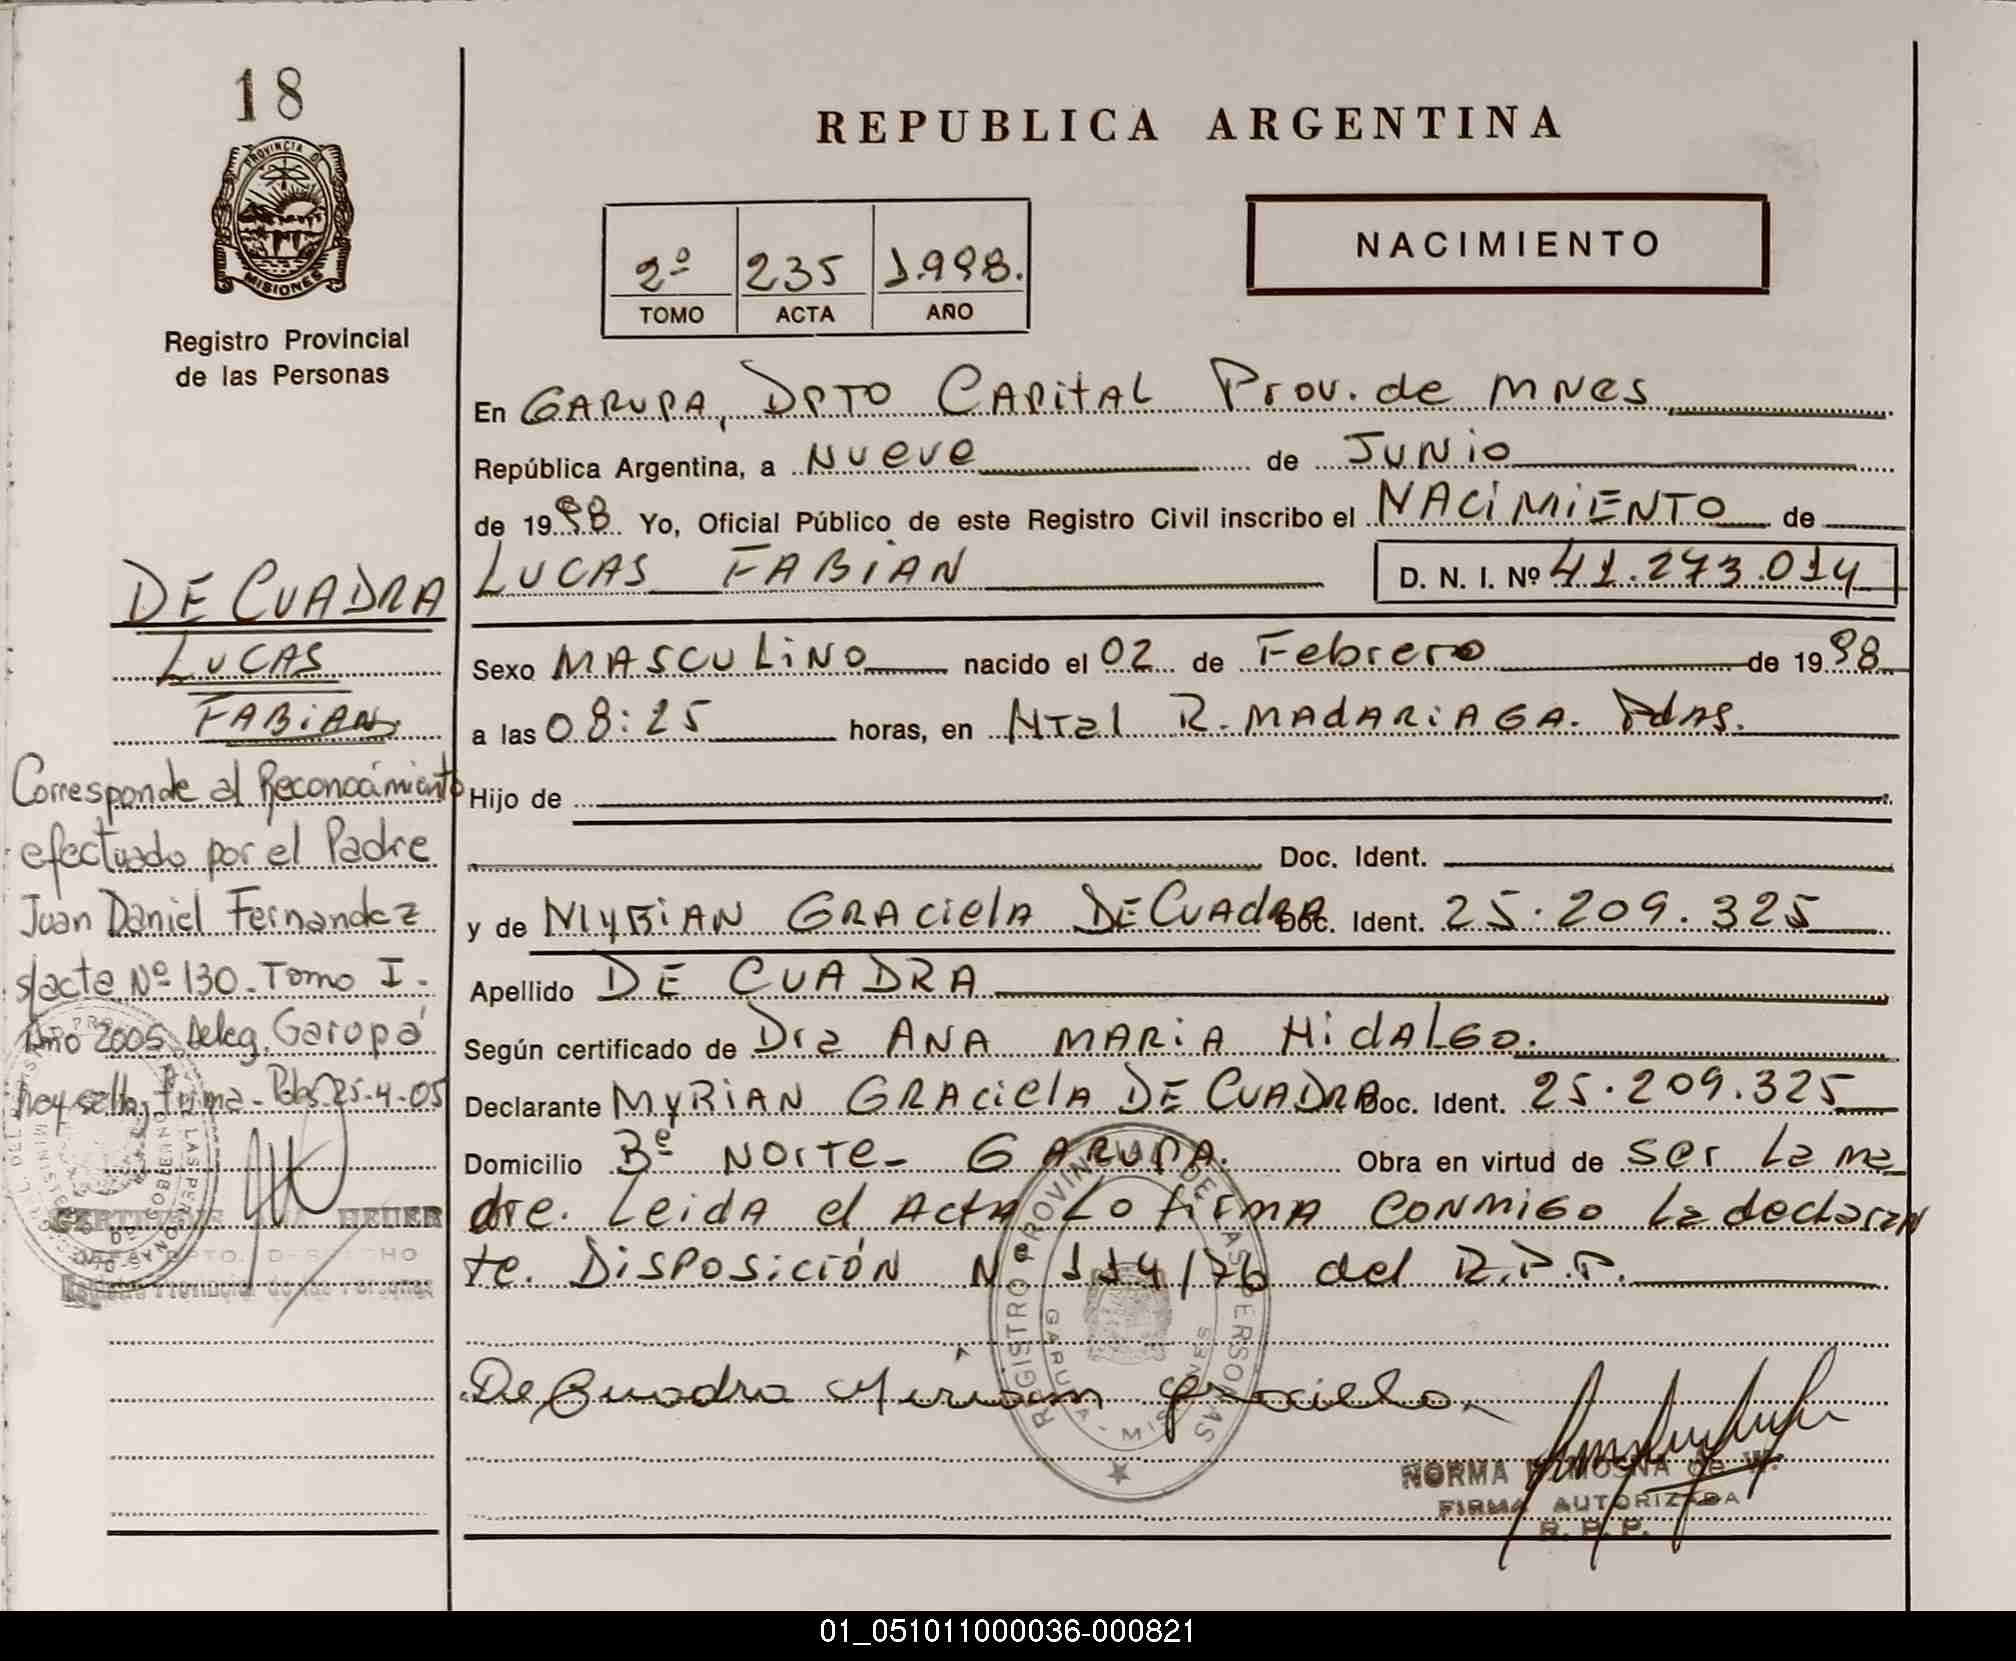 18
PROVINCIA DE
MISIONES
Registro Provincial
de las Personas
DE CUADRA
LUCAS
FABIAN.
Corresponde al Reconocimiento
efectuado por el Padre
Juan Daniel Fernandez
s/acta Nº 130. Tomo I.
Año 2005 Deleg. Garupá
hoy sello y firma. Pdas 25-4-05
HEUER
Registro Provincial de las Personas
REPUBLICA ARGENTINA
2º 235 1.998.
TOMO ACTA AÑO
NACIMIENTO
En GARUPA, DPTO CAPITAL Prov. de MNes
República Argentina, a NUEVE de JUNIO
de 1998 Yo, Oficial Público de este Registro Civil inscribo el NACIMIENTO de
LUCAS FABIAN D. N. I. Nº 41.273.014
Sexo MASCULINO nacido el 02 de Febrero de 1998
a las 08:25 horas, en HTal R. MADARIAGA. Pdas.
Hijo de
Doc. Ident.
y de MYRIAN GRACIELA DE CUADRA Doc. Ident. 25.209.325
Apellido DE CUADRA
Según certificado de Dra ANA MARIA HIDALGO.
Declarante MYRIAN GRACIELA DE CUADRA Doc. Ident. 25.209.325
Domicilio Bº NORTE - GARUPA. Obra en virtud de ser La ma
dre. Leida el Acta Lo firma conmigo La declaran
te. Disposición Nº 114/76 del R.P.P.
De Cuadra Miriam Graciela
REGISTRO PROVINCIAL DE LAS PERSONAS
GARUPA - MISIONES
NORMA de W.
FIRMA AUTORIZADA
R. P. P.
01_051011000036-000821